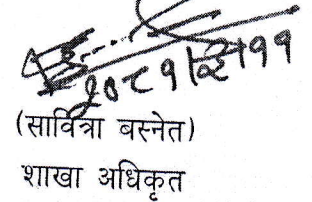 २०८१।३।११
(सावित्रा बस्नेत)
शाखा अधिकृत